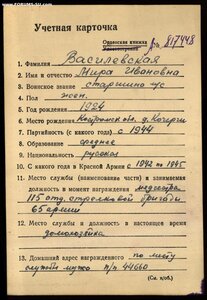 FORUMS-SU.com
Учетная карточка
Орденская книжка
Удостоверение № 817448
1. Фамилия Василевская
2. Имя и отчество Мира Ивановна
3. Воинское звание старшина м/с
4. Пол жен.
5. Год рождения 1924
6. Место рождения Костромская об. д.
7. Партийность (с какого года) с 1944
8. Образование среднее
9. Национальность русская
10. С какого года в Красной Армии с 1942 по 1945
11. Место службы (наименование части) и занимаемая
должность в момент награждения медсестра
115 отд. стрелковой бригады
65 армии
12. Место службы и должность в настоящее время
домохозяйка
13. Домашний адрес награжденного по месту
службы мужа п/п 44660
(См. н/об.)